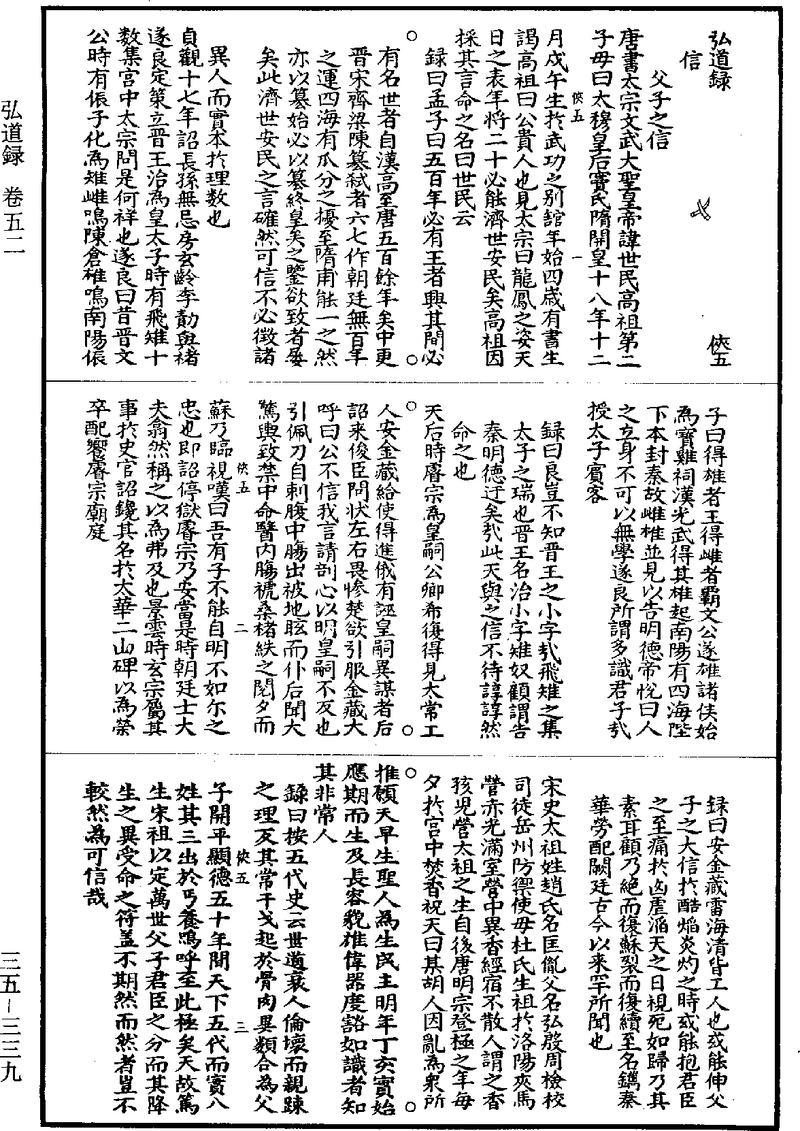 弘道録
信
俠五
父子之信
唐書太宗文武大聖皇帝諱世民髙祖第二
子母曰太穆皇后竇氏隋開皇十八年十二
俠五
一
月戊午生於武功之别舘年始四歳有書生
謁髙祖曰公貴人也見太宗曰龍鳳之姿天
日之表年將二十必能濟世安民矣髙祖因
採其言命之名曰世民云
録曰孟子曰五百年必有王者興其間必
有名世者自漢髙至唐五百餘年矣中更
晉宋齊梁陳簒弑者六七作朝廷無百年
之運四海有瓜分之擾至隋甫能一之然
亦以簒始必以簒終皇矣之鑒欲致者屢
矣此濟世安民之言確然可信不必徵諸
異人而實本於理數也
貞觀十七年詔長孫無忌房玄齡李勣與禇
遂良定策立晉王治為皇太子時有飛雉十
數集宮中太宗問是何祥也遂良曰昔晉文
公時有侲子化為雉雌鳴陳倉雄鳴南陽侲
子曰得雄者王得雌者霸文公遂雄諸侯始
為寳雞祠漢光武得其雄起南陽有四海陛
下本封秦故雌雄並見以告明德帝悦曰人
之立身不可以無學遂良所謂多識君子哉
授太子賓客
録曰良豈不知晉王之小字哉飛雉之集
太子之瑞也晉王名治小字雉奴顧謂告
秦明德迂矣哉此天與之信不待諄諄然
命之也
天后時睿宗為皇嗣公卿希復得見太常工
人安金藏給使得進俄有誣皇嗣異謀者后
詔来俊臣問状左右畏慘楚欲引服金藏大
呼曰公不信我言請剖心以明皇嗣不反也
引佩刀自剌腹中腸出被地眩而仆后聞大
驚輿致禁中命醫内腸褫桑禇紩之閲夕而
蘇乃臨視嘆曰吾有子不能自明不如尔之
俠五
二
忠也即詔停獄睿宗乃安當是時朝廷士大
夫翕然稱之以為弗及也景雲時玄宗屬其
事於史官詔鑱其名於太華二山碑以為榮
卒配饗睿宗廟庭
録曰安金藏雷海清皆工人也或能伸父
子之大信於酷焰炎灼之時或能抱君臣
之至痛於凶虐滔天之日視死如歸乃其
素耳顧乃絶而復蘇裂而復續至名鐫泰
華勞配闕廷古今以来罕所聞也
宋史太祖姓趙氏名匡胤父名弘殷周檢校
司徒岳州防禦使母杜氏生祖於洛陽夾馬
營赤光滿室營中異香經宿不散人謂之香
孩兒營太祖之生自後唐明宗登極之年每
夕於宮中焚香祝天曰某胡人因亂為衆所
推願天早生聖人為生民主明年丁亥實始
應期而生及長容貌雄偉器度豁如識者知
其非常人
録曰按五代史云世道衰人倫壞而親踈
之理反其常干戈起於骨肉異類合為父
俠五
三
子開平顯德五十年間天下五代而實八
姓其三出於丐養嗚呼至此極矣天故篤
生宋祖以定萬世父子君臣之分而其降
生之異受命之符盖不期然而然者豈不
較然為可信哉
弘道録 卷五二
三五—三三九